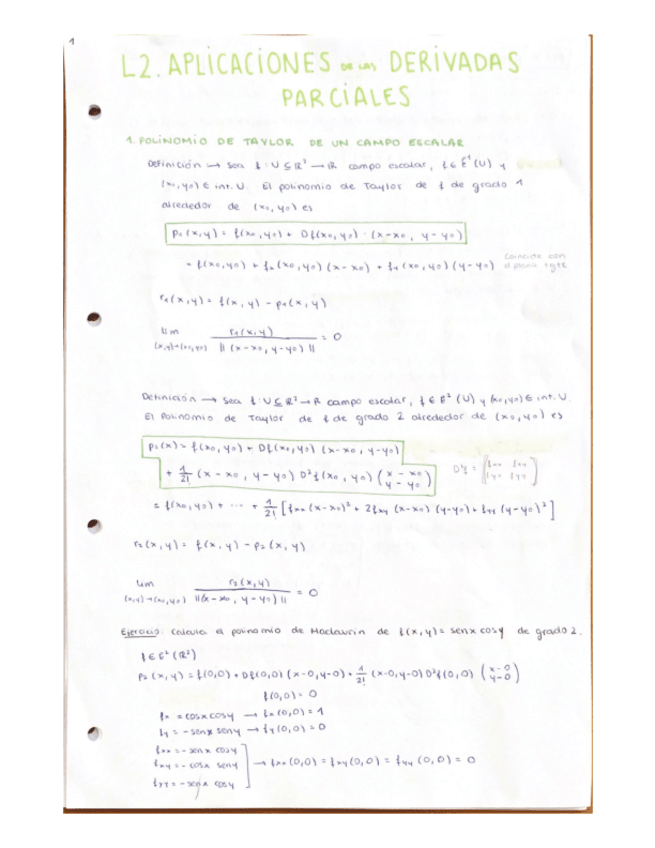 1
L2. APLICACIONES DE LAS DERIVADAS
PARCIALES
1. POLINOMIO DE TAYLOR DE UN CAMPO ESCALAR
Definición → Sea f: U ⊆ ℝ² → ℝ campo escalar, f ∈ C¹(U) y
(x₀,y₀) ∈ int. U. El polinomio de Taylor de f de grado 1
alrededor de (x₀,y₀) es
p₁(x,y) = f(x₀,y₀) + Df(x₀,y₀) · (x-x₀, y-y₀)
= f(x₀,y₀) + fₓ(x₀,y₀)(x-x₀) + fᵧ(x₀,y₀)(y-y₀) Coincide con el plano tgte
r₁(x,y) = f(x,y) - p₁(x,y)
lim (x,y)→(x₀,y₀) r₁(x,y) / ||(x-x₀, y-y₀)|| = 0
Definición → Sea f: U ⊆ ℝ² → ℝ campo escalar, f ∈ C²(U) y (x₀,y₀) ∈ int. U.
El polinomio de Taylor de f de grado 2 alrededor de (x₀,y₀) es
p₂(x) = f(x₀,y₀) + Df(x₀,y₀) (x-x₀, y-y₀)
+ 1/2! (x-x₀, y-y₀) D²f(x₀,y₀) (x-x₀ y-y₀) D²f = [fxx fxy fyx fyy]
= f(x₀,y₀) + ... + 1/2! [fxx (x-x₀)² + 2fxy (x-x₀)(y-y₀) + fyy (y-y₀)²]
r₂(x,y) = f(x,y) - p₂(x,y)
lim (x,y)→(x₀,y₀) r₂(x,y) / ||(x-x₀, y-y₀)|| = 0
Ejercicio: Calcula el polinomio de Maclaurin de f(x,y) = senx cosy de grado 2.
f ∈ C²(ℝ²)
p₂(x,y) = f(0,0) + Df(0,0) (x-0,y-0) + 1/2! (x-0,y-0) D²f(0,0) (x-0 y-0)
f(0,0) = 0
fx = cosx cosy → fx(0,0) = 1
fy = -senx seny → fy(0,0) = 0
fxx = -senx cosy
fxy = -cosx seny → fxx(0,0) = fxy(0,0) = fyy(0,0) = 0
fyy = -senx cosy